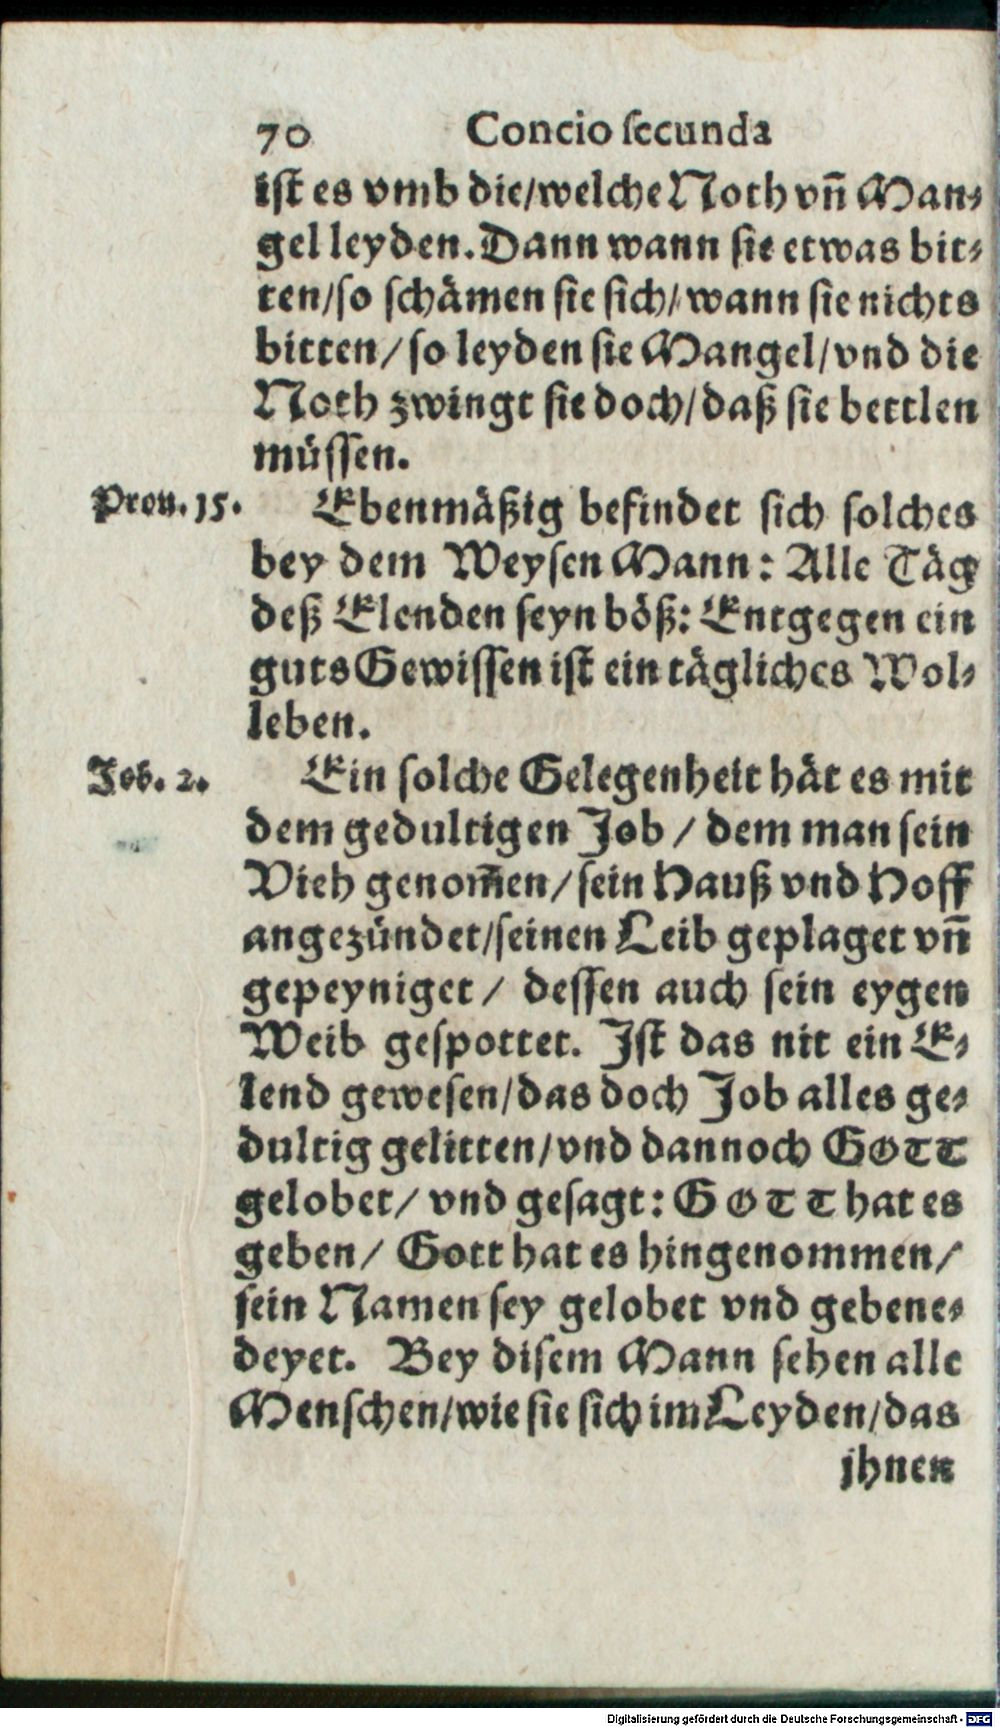 70 Concio secunda
ist es vmb die/welche Noth vñ Man⸗
gel leyden. Dann wann sie etwas bit⸗
ten/so schämen sie sich/wann sie nichts
bitten/so leyden sie Mangel/vnd die
Noth zwingt sie doch/daß sie bettlen
müssen.
Prou. 15. Ebenmäßig befindet sich solches
bey dem Weysen Mann: Alle Täg
deß Elenden seyn böß: Entgegen ein
guts Gewissen ist ein tägliches Wol⸗
leben.
Job. 2. Ein solche Gelegenheit hät es mit
dem gedultigen Job / dem man sein
Vieh genom̃en/sein Hauß vnd Hoff
angezündet/seinen Leib geplaget vñ
gepeyniget / dessen auch sein eygen
Weib gespottet. Ist das nit ein E⸗
lend gewesen/das doch Job alles ge⸗
dultig gelitten/vnd dannoch GOTT
gelobet/ vnd gesagt: GOTT hat es
geben/ Gott hat es hingenommen/
sein Namen sey gelobet vnd gebene⸗
deyet. Bey disem Mann sehen alle
Menschen/wie sie sich im Leyden/das
jhnen
Digitalisierung gefördert durch die Deutsche Forschungsgemeinschaft - DFG